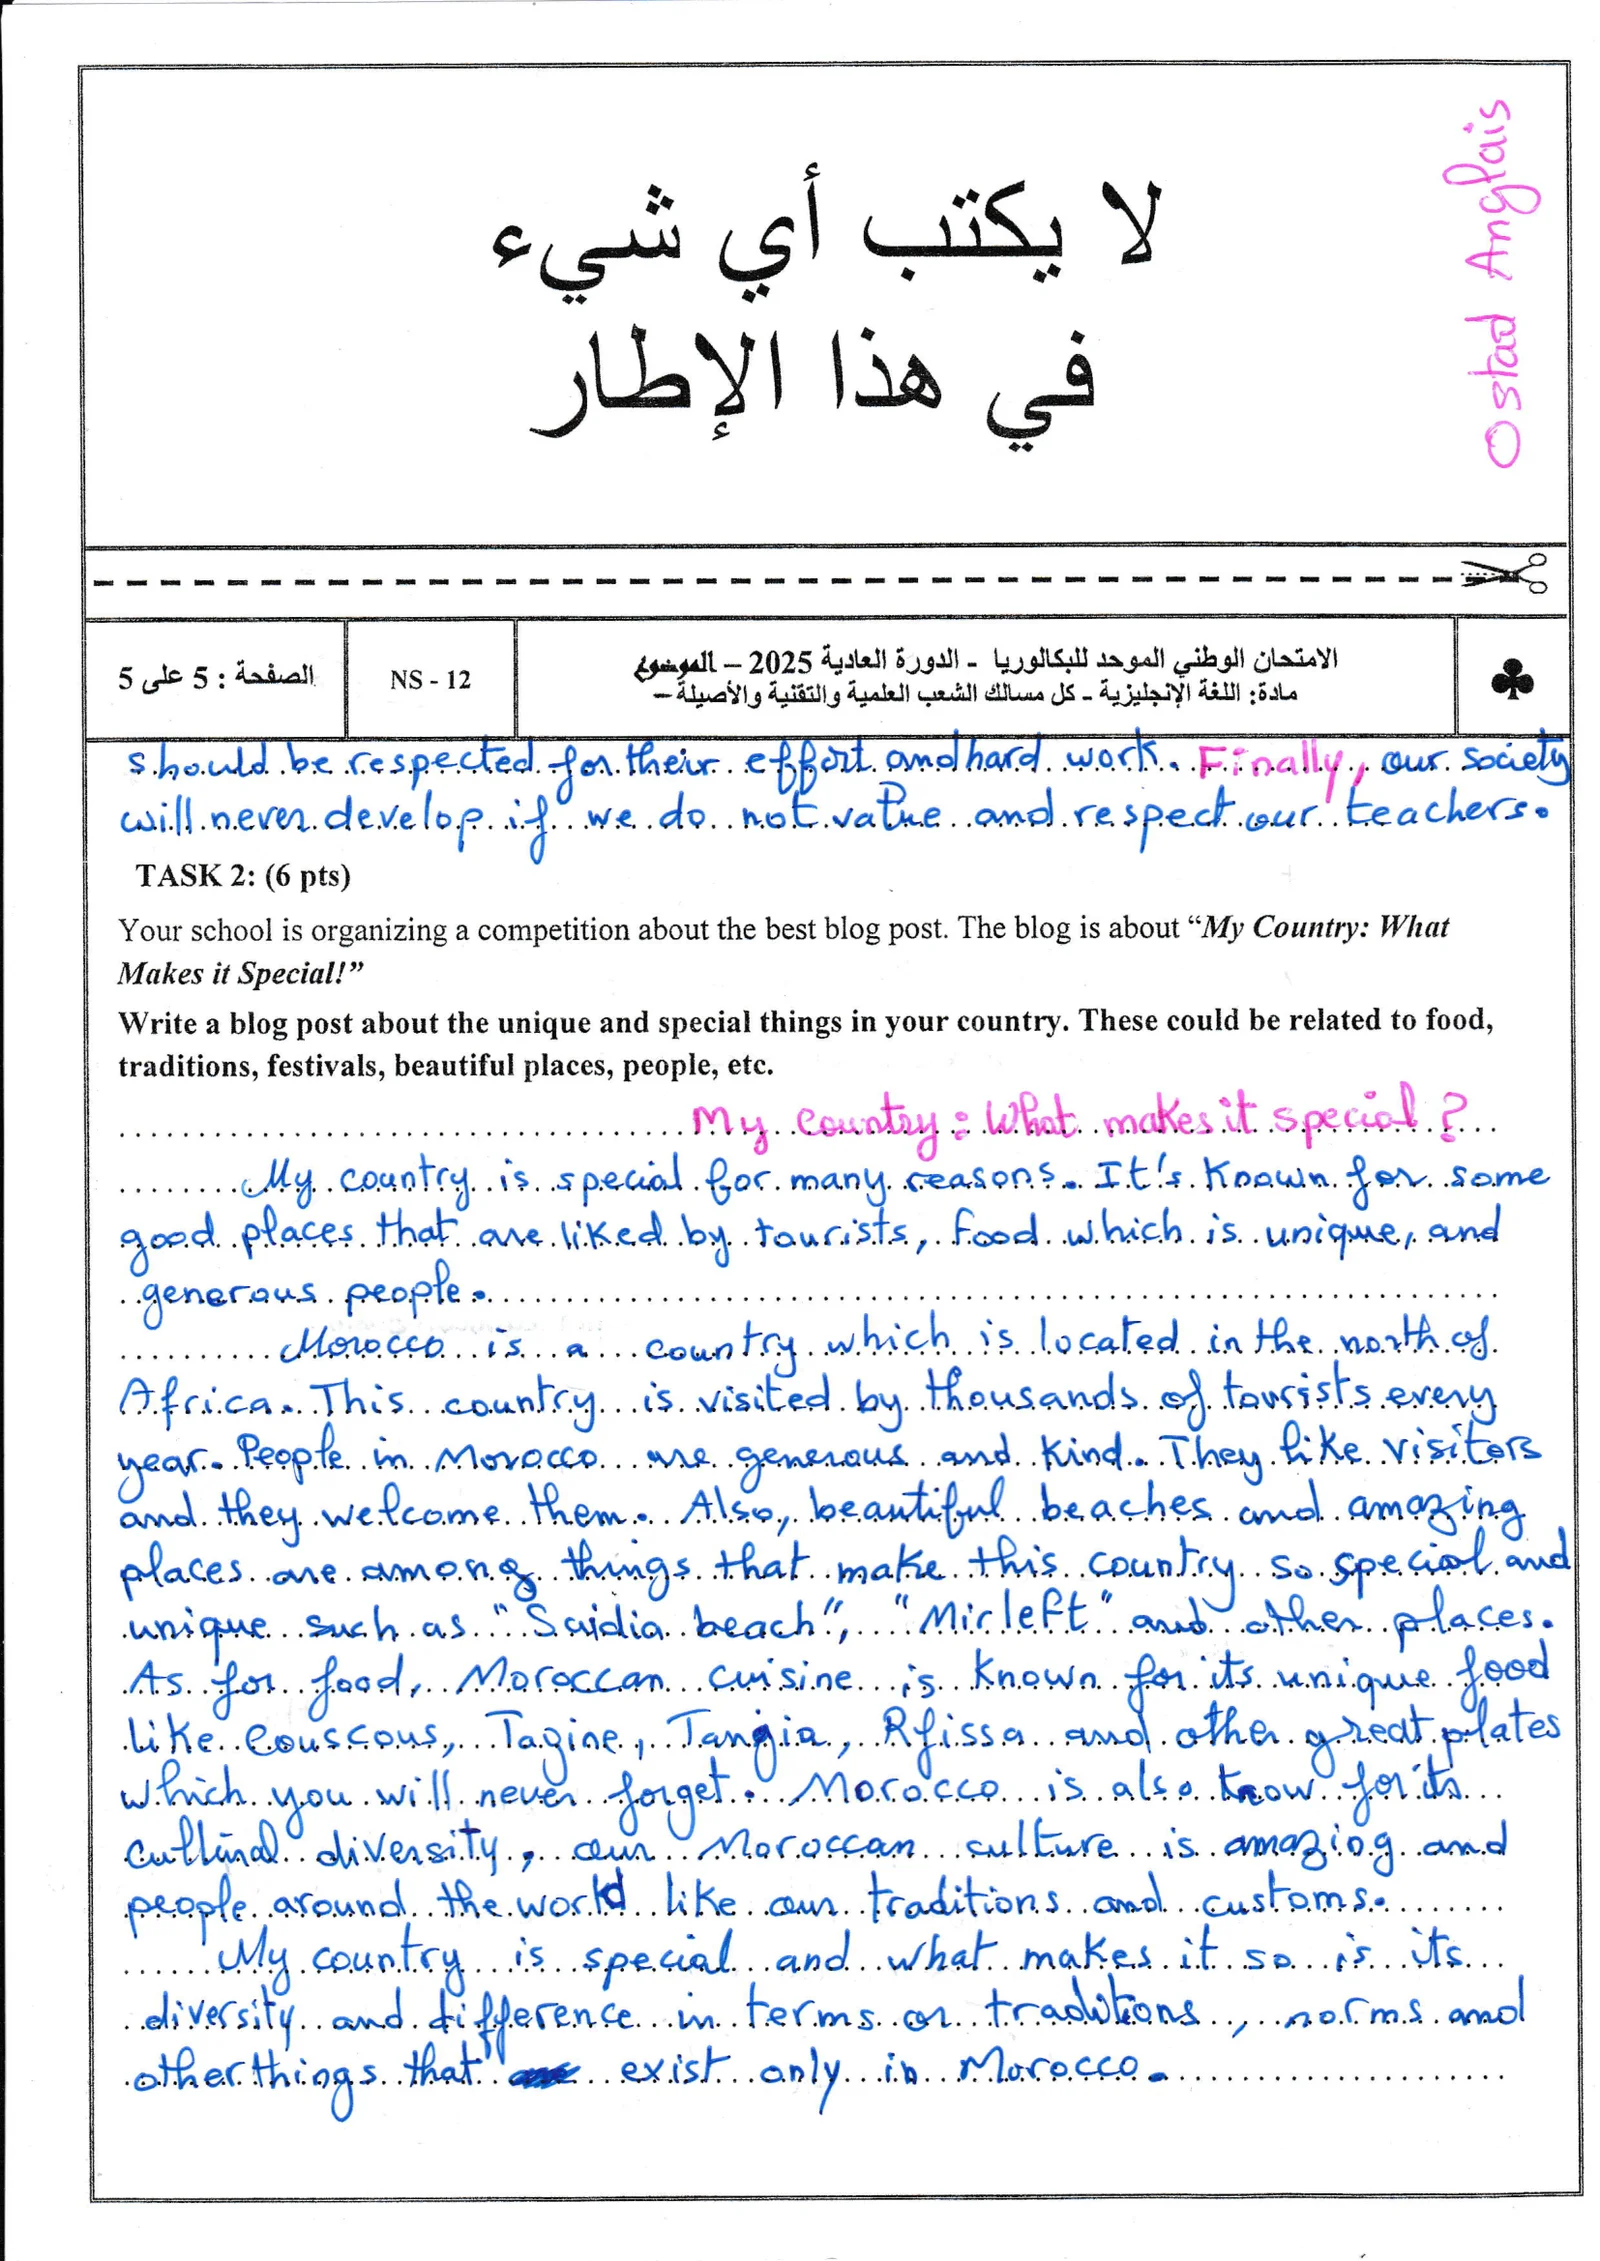 Ostad Anglais
لا يكتب أي شيء
في هذا الإطار
الصفحة : 5 على 5
NS - 12
الامتحان الوطني الموحد للبكالوريا - الدورة العادية 2025 – الموضوع
مادة: اللغة الإنجليزية - كل مسالك الشعب العلمية والتقنية والأصيلة –
should be respected for their effort and hard work. Finally, our society
will never develop if we do not value and respect our teachers.
TASK 2: (6 pts)
Your school is organizing a competition about the best blog post. The blog is about “My Country: What
Makes it Special!”
Write a blog post about the unique and special things in your country. These could be related to food,
traditions, festivals, beautiful places, people, etc.
My country: What makes it special?
My country is special for many reasons. It's known for some
good places that are liked by tourists, food which is unique, and
generous people.
Morocco is a country which is located in the north of
Africa. This country is visited by thousands of tourists every
year. People in Morocco are generous and kind. They like visitors
and they welcome them. Also, beautiful beaches and amazing
places are among things that make this country so special and
unique such as "Saidia beach", "Mirleft" and other places.
As for food, Moroccan cuisine is known for its unique food
like Couscous, Tagine, Tangia, Rfissa and other great plates
which you will never forget. Morocco is also know for its
cultural diversity, our Moroccan culture is amazing and
people around the world like our traditions and customs.
My country is special and what makes it so is its
diversity and difference in terms or traditions, norms and
other things that exist only in Morocco.